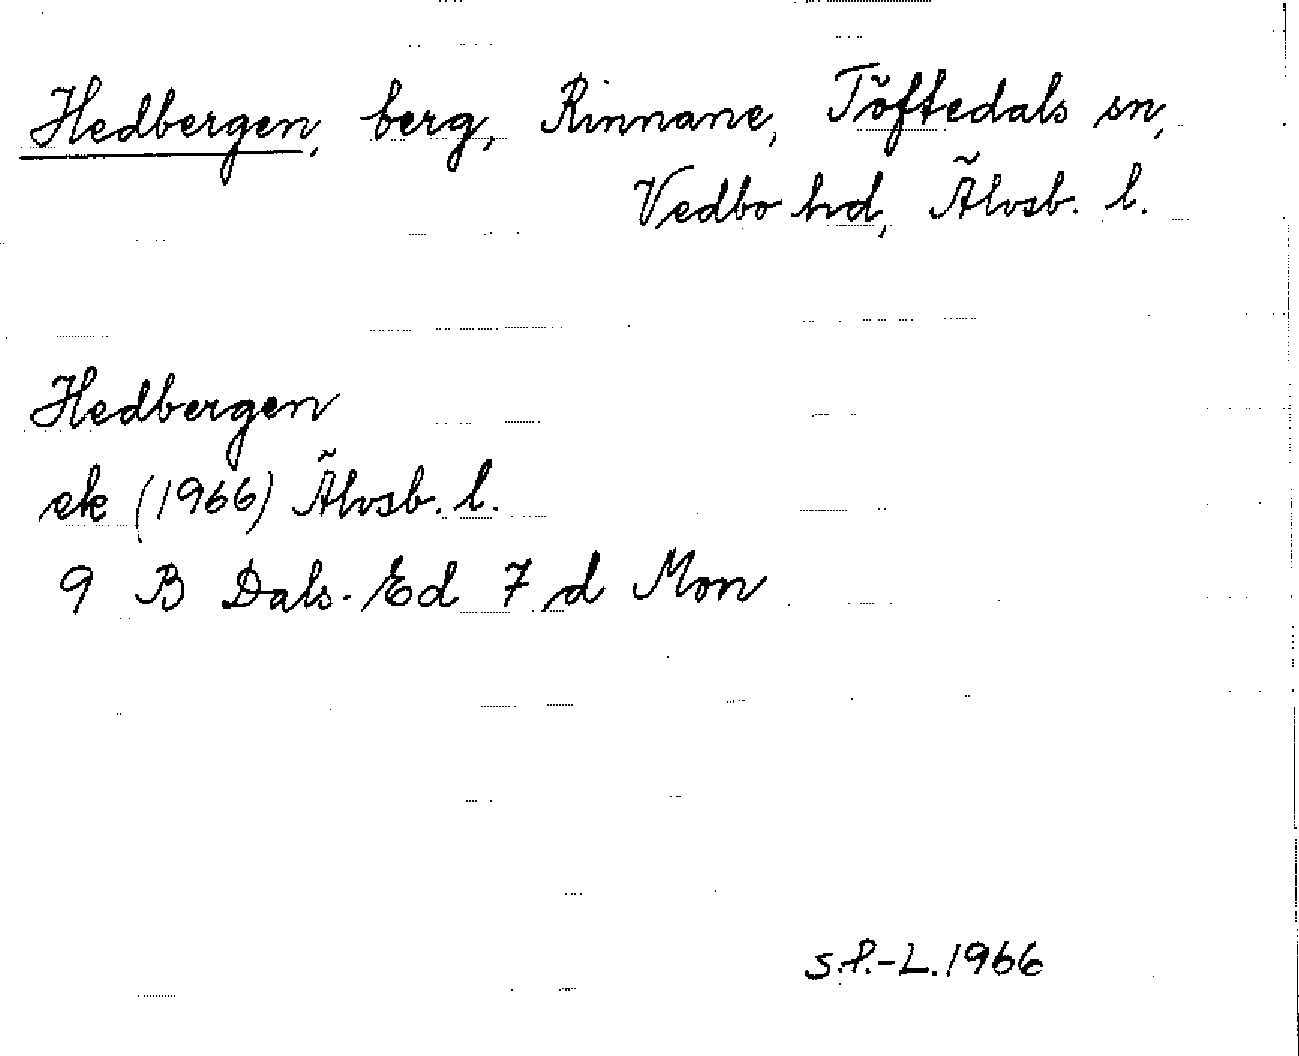 Hedbergen, berg, Rinnane, Töftedals sn,
Vedbo hd, Älvsb. l.
Hedbergen
ek (1966) Älvsb. l.
9 B Dals-Ed 7 d Mon
S.P.-L. 1966